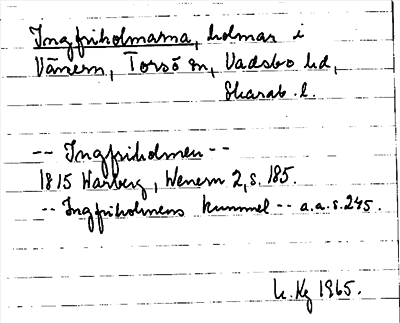 Ingfriholmarna, holmar i
Vänern, Torsö sn, Vadsbo hd,
Skarab. l.
-- Ingfriholmen --
1815 Warberg, Wenern 2, s. 185.
-- Ingfriholmens kummel -- a.a. s. 245.
1965.